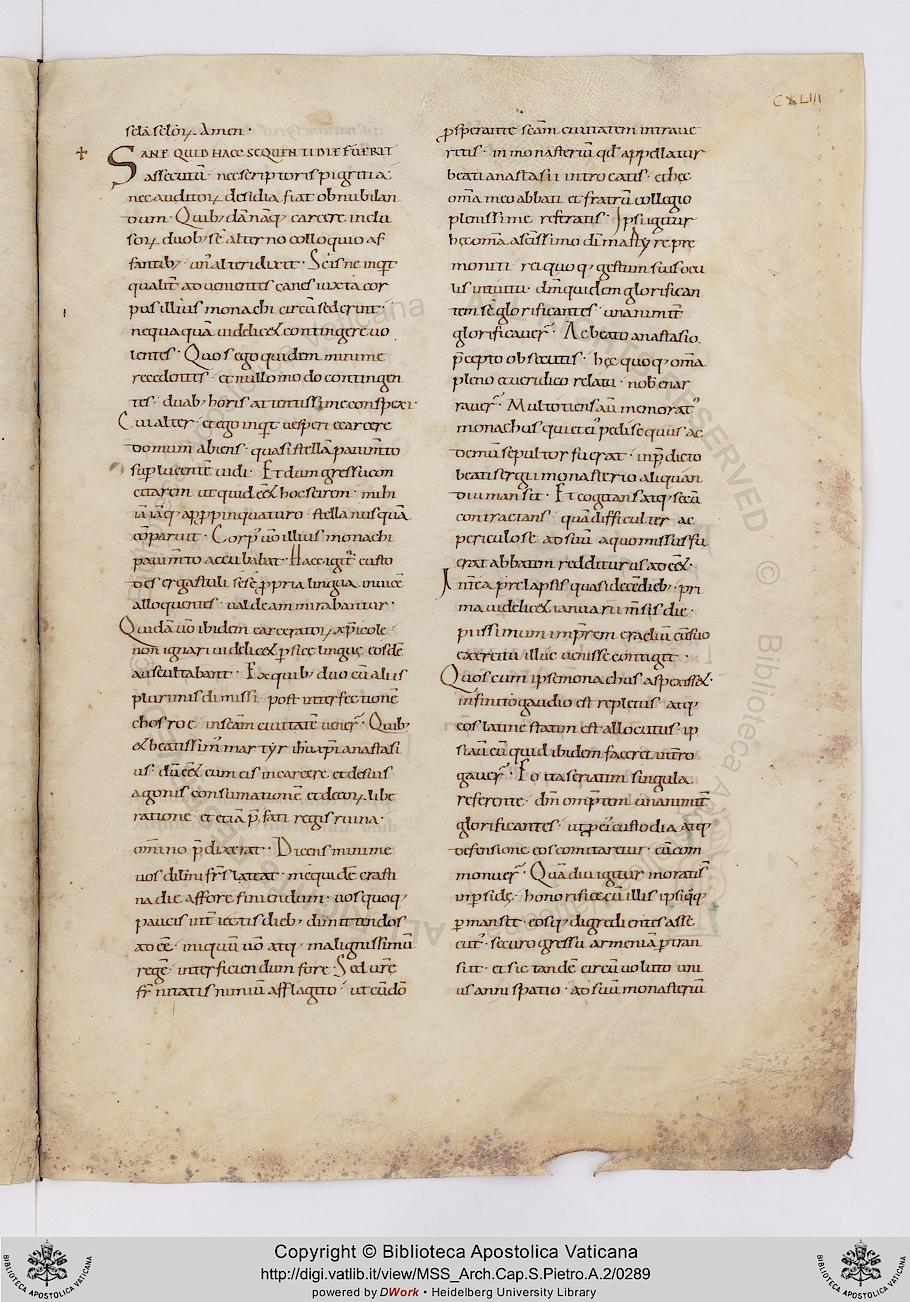 CXLIII
scl̄a sclōꝝ. Amen.
SANE QUID HAEC SEQUENTI DIE FUERIT
assecutū. nec scriptoris pigritia.
nec auditoꝝ desidia fiat obnubilan
dum. Quibꝫ dānaqꝫ carcere inclu
soꝝ duobꝫ sē alterno colloquio af
fantibꝫ. un' alteri dixit. Scis ne inqt
qualit̄ advenientes canes iuxta cor
pus illius monachi circū sederint.
nequaquā videlicꝫ contingere vo
lentes. Quos ego quidem minime
recedentes. et nullo modo contingen
tes. duabꝫ horis attentissime conspexi.
Cui alter. et ego inqt vesperi e carcere
domum abiens. quasi stellā pavim̄to
suꝑ lucente vidi. Et dum gressu con
citarem ut quid eēt hoc scirem. mihi
iā iāqꝫ appropinquaturo. stella nusquā
cōparuit. Corp' ūo illius monachi
pavim̄to accubabat. Haec igit̄ custo
des ergastuli sese ꝓpria lingua invicē
alloquentes. valde am mirabantur.
Quidā ūo ibidem carceratoꝝ xp̄icole.
non ignari videlicꝫ persice linguę eosdē
auscultabant. Ex quibꝫ duo cū aliis
plurimis dimissi. post interfectionē
chosroe. in scām civitatē vener̄. Quibꝫ
& beatissim' martyr ihu xp̄i anastasi
us. dū eēt cum eis in carcere et de suis
agonis consumatione et de eoꝝ libe
ratione. et etiā p̄fati regis ruina.
omnino p̄dixerat. Dicens minime
vos dilmi frs̄ lateat. me quidē crasti
na die affore finiendum. vos quoqꝫ
paucis int̄iectis diebꝫ. dimittendos
ad eē. iniquū ūo atqꝫ malignissimū
regē. interficiendum fore. Sed vr̄e
fr̄nitatis nimiū afflagito. ut eundō
ꝓsperante scām civitatem intrave
ritis. in monasteriū qd' appellatur
beati anastasii introeatis. et hęc
om̄a meo abbati et fratrū collegio
plenissime referatis. Ipsi igitur
hęc om̄a a scīssimo dī martyre pre
moniti. rei quoqꝫ gestum suis ocu
lis intuitu. dm̄ quidem glorifican
tem sē glorificantes. unanimit̄
glorificaver̄. Ac beato anastasio
p̄cepto obsecutis. hęc quoqꝫ om̄a
pleno et veridico relatu. nob' enar
raver̄. Multotiens aū memorat'
monachus qui et ei' pedisequus ac
demū sepultor fuerat. in p̄dicto
beati sergii monasterio aliquan
diu mansit. Et cogitans atqꝫ secū
contractans. quā difficulter ac
periculose ad suū a quo missus fu
erat abbatem redditurus ad eēt.
Int̄ea pre lapsis quasi decē diebꝫ. pri
ma videlicꝫ ianuarii m̄sis die.
piissimum imp̄rem eracliū cū suo
exercitu illuc venisse contigit.
Quos cum ipse monachus aspexisset.
infinito gaudio est repletus. atqꝫ
eos latine statim est allocutus. ip
si aū eū quid ibidem faceret intro
gaver̄. Eo ita seriatim singula
referente. dm̄ om̄ptem unanimit̄
glorificantes. ut ꝑ ei' custodia atqꝫ
defensione eos comitaretur. eū com
monuer̄. Quādiu igitur moratis
in perside. honorifice cū illis ipse quoqꝫ
permansit. eosqꝫ digredientes asse
cut'. securo gressu armeniā pertran
siit. et sic tandē circū voluto uni
us anni spatio. ad suū monasteriū
Copyright © Biblioteca Apostolica Vaticana
http://digi.vatlib.it/view/MSS_Arch.Cap.S.Pietro.A.2/0289
powered by DWork • Heidelberg University Library